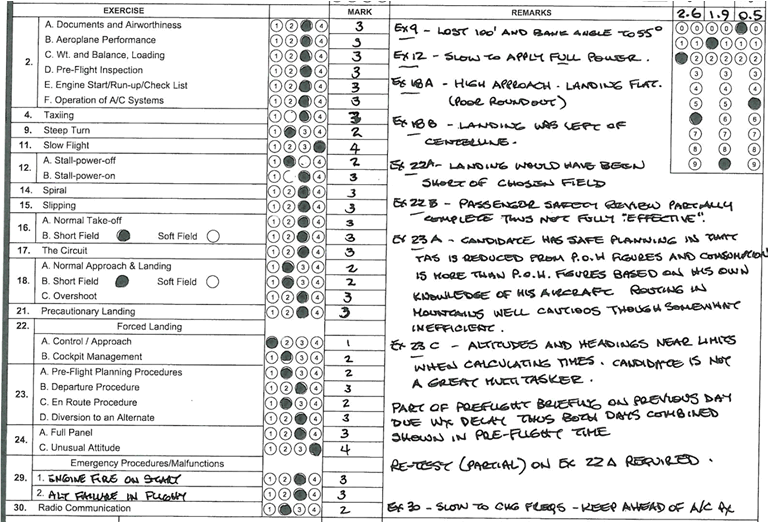 EXERCISE MARK REMARKS 2.6 1.9 0.5
2.
A. Documents and Airworthiness 1 2 4 3
B. Aeroplane Performance 1 2 4 3
C. Wt. and Balance, Loading 1 2 4 3
D. Pre-Flight Inspection 1 2 4 3
E. Engine Start/Run-up/Check List 1 2 4 3
F. Operation of A/C Systems 1 2 4 3
4. Taxiing 1 4 3
9. Steep Turn 1 3 4 2
11. Slow Flight 1 2 3 4
12.
A. Stall-power-off 1 4 2
B. Stall-power-on 1 4 3
14. Spiral 1 2 4 3
15. Slipping 1 2 4 3
16.
A. Normal Take-off 1 2 4 3
B. Short Field Soft Field 1 2 4 3
17. The Circuit 1 2 4 3
18.
A. Normal Approach & Landing 1 3 4 2
B. Short Field Soft Field 1 3 4 2
C. Overshoot 1 2 4 3
21. Precautionary Landing 1 2 4 3
22. Forced Landing
A. Control / Approach 2 3 4 1
B. Cockpit Management 1 3 4 2
23.
A. Pre-Flight Planning Procedures 1 3 4 2
B. Departure Procedure 1 2 4 3
C. En Route Procedure 1 3 4 2
D. Diversion to an Alternate 1 2 4 3
24.
A. Full Panel 1 2 4 3
C. Unusual Attitude 1 2 3 4
Emergency Procedures/Malfunctions
29.
1. ENGINE FIRE ON START 1 2 4 3
2. ALT FAILURE IN FLIGHT 1 2 4 3
30. Radio Communication 1 3 4 2
EX 9 - LOST 100' AND BANK ANGLE TO 55°
EX 12 - SLOW TO APPLY FULL POWER.
EX 18A - HIGH APPROACH. LANDING FLAT.
(POOR ROUNDOUT)
EX 18B - LANDING WAS LEFT OF
CENTERLINE.
EX 22A - LANDING WOULD HAVE BEEN
SHORT OF CHOSEN FIELD
EX 22B - PASSENGER SAFETY REVIEW PARTIALLY
COMPLETE THUS NOT FULLY "EFFECTIVE".
EX 23A - CANDIDATE HAS SAFE PLANNING IN THAT
TAS IS REDUCED FROM P.O.H FIGURES AND CONSUMPTION
IS MORE THAN P.O.H. FIGURES BASED ON HIS OWN
KNOWLEDGE OF HIS AIRCRAFT ROUTING IN
MOUNTAINS WELL CAUTIOUS THOUGH SOMEWHAT
INEFFICIENT.
EX 23C - ALTITUDES AND HEADINGS NEAR LIMITS
WHEN CALCULATING TIMES. CANDIDATE IS NOT
A GREAT MULTITASKER.
PART OF PREFLIGHT BRIEFING ON PREVIOUS DAY
DUE WX DELAY THUS BOTH DAYS COMBINED
SHOWN IN PRE-FLIGHT TIME
RE-TEST (PARTIAL) ON EX 22A REQUIRED.
EX 30 - SLOW TO CHG FREQS - KEEP AHEAD OF A/C
0 0 0 0 0
1 1 1 1 1
2 2 2 2 2
3 3 3
4 4 4
5 5
6 6
7 7 7
8 8 8
9 9